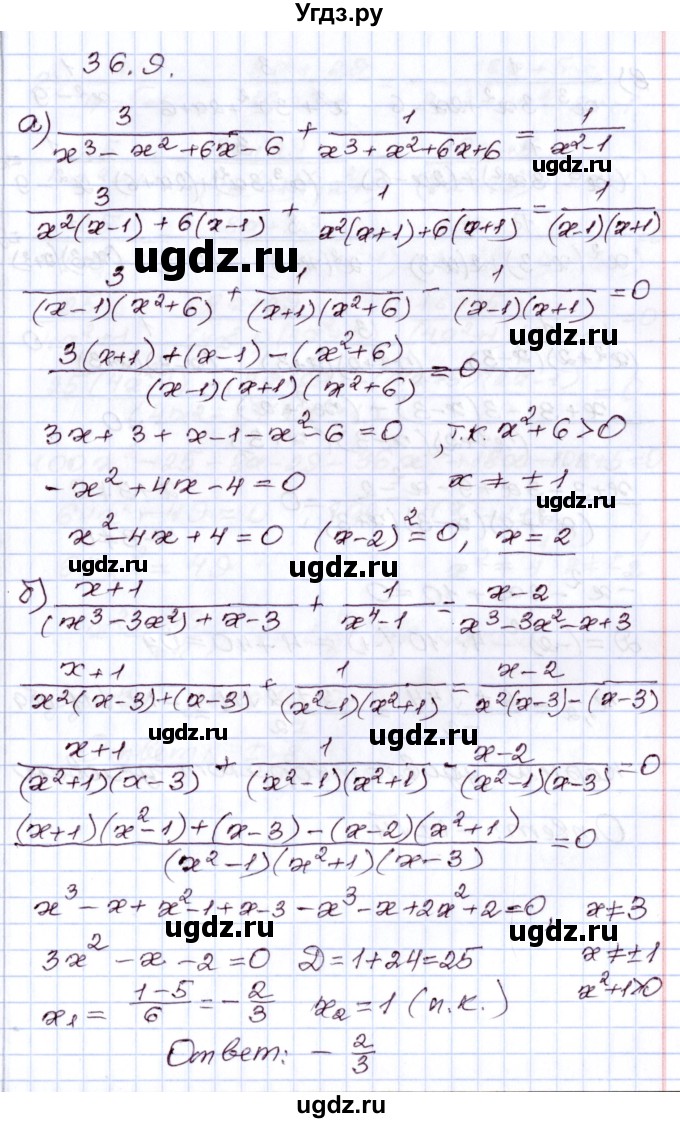 Угдз.ру
36.9.
а) 3/(x³ - x² + 6x - 6) + 1/(x³ + x² + 6x + 6) = 1/(x² - 1)
ugdz.ru
3/(x²(x-1) + 6(x-1)) + 1/(x²(x+1) + 6(x+1)) = 1/((x-1)(x+1))
ugdz.ru
3/((x-1)(x²+6)) + 1/((x+1)(x²+6)) - 1/((x-1)(x+1)) = 0
ugdz.ru
(3(x+1) + (x-1) - (x²+6))/((x-1)(x+1)(x²+6)) = 0
ugdz.ru
3x + 3 + x - 1 - x² - 6 = 0, т.к. x² + 6 > 0
-x² + 4x - 4 = 0 x ≠ ±1
ugdz.ru
x² - 4x + 4 = 0 (x-2)² = 0, x = 2
ugdz.ru ugdz.ru
б) (x+1)/((x³ - 3x²) + x - 3) + 1/(x⁴ - 1) = (x-2)/(x³ - 3x² - x + 3)
(x+1)/(x²(x-3) + (x-3)) + 1/((x²-1)(x²+1)) = (x-2)/(x²(x-3) - (x-3))
ugdz.ru ugdz.ru
(x+1)/((x²+1)(x-3)) + 1/((x²-1)(x²+1)) - (x-2)/((x²-1)(x-3)) = 0
((x+1)(x²-1) + (x-3) - (x-2)(x²+1))/((x²-1)(x²+1)(x-3)) = 0
x³ - x + x² - 1 + x - 3 - x³ - x + 2x² + 2 = 0, x ≠ 3
ugdz.ru ugdz.ru
3x² - x - 2 = 0 D = 1 + 24 = 25 x ≠ ±1
x₁ = (1-5)/6 = -2/3 x₂ = 1 (п.к.) x² + 1 > 0
ugdz.ru ugdz.ru
Ответ: -2/3
ugdz.ru